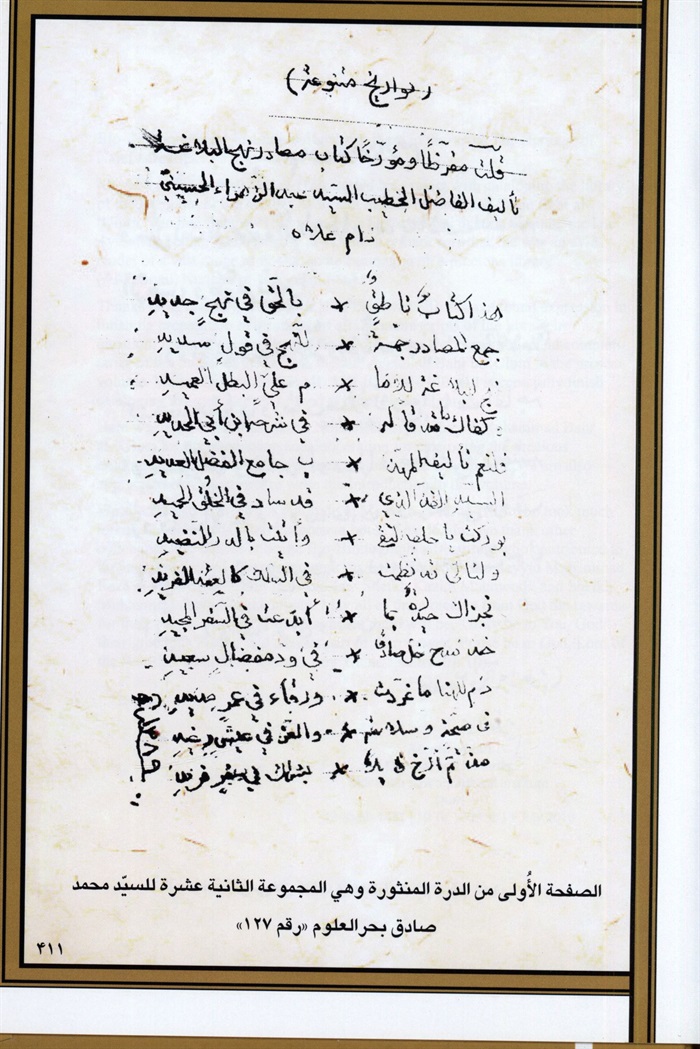 (تواريخ متنوعة)
قلت مقرّظاً ومؤرّخاً كتاب مصادر نهج البلاغة
تأليف الفاضل الخطيب السيد عبد الزهراء الحسيني
دام علاه
هذا كتابٌ ناطقٌ × بالحق في نهج جديد
جمع المصادر جمة × للنهج في قول سديد
نهج البلاغة للاما × م عليّ البطل العميد
كفاك ما قد قاله × في شرحه ابن أبي الحديد
فلنعم تأليف المهذ × ب جامع الفضل العديد
السيد الذي × قد ساد في الخلق الحميد
بوركت يا × وأتيت بالدر النضيد
ولئالئ قد نظمت × في السلك كالعقد الفريد
فجزاك حيدرة بما × أبدعت في السفر المجيد
خذ نصح خل صادق × في ود مفضال سعيد
دم للهنا ما غردت × ورقاء في عمر مديد
في صحة وسلامة × والعز في عيش رغيد
بشراك في سفر فريد
الصفحة الأُولى من الدرة المنثورة وهي المجموعة الثانية عشرة للسيّد محمد
صادق بحر العلوم «رقم ١٢٧»
٤١١